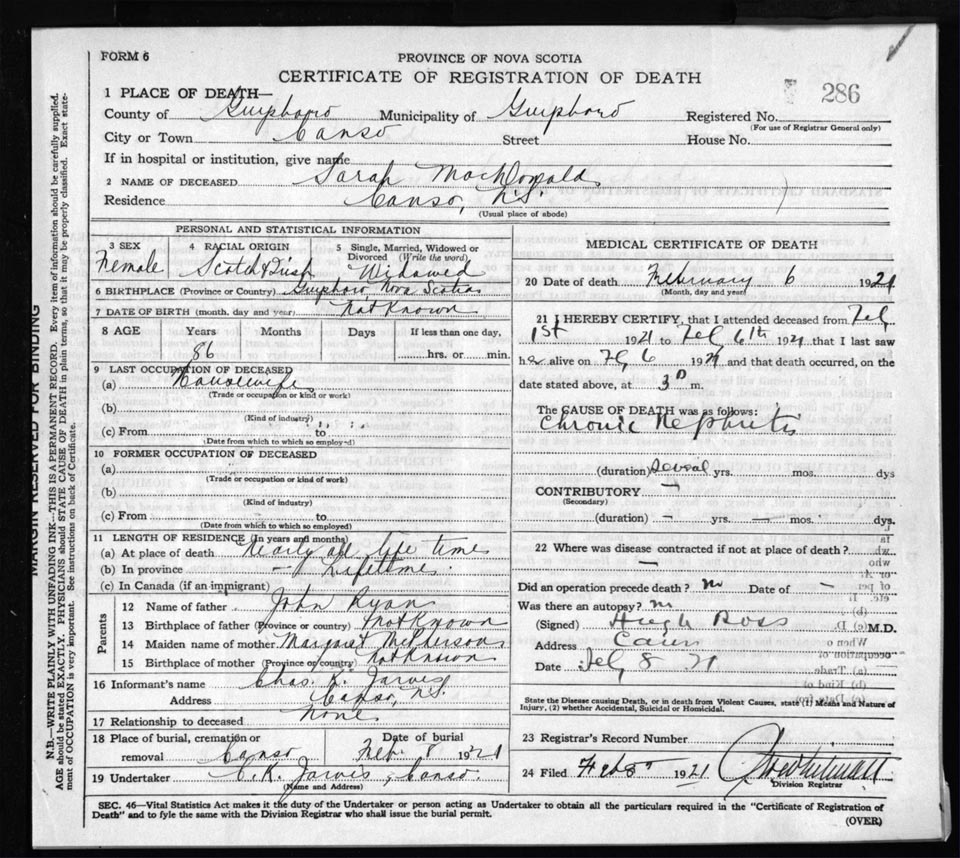 FORM 6
PROVINCE OF NOVA SCOTIA
CERTIFICATE OF REGISTRATION OF DEATH
286
1 PLACE OF DEATH—
County of Guysboro Municipality of Guysboro Registered No.
(For use of Registrar General only)
City or Town Canso Street House No.
If in hospital or institution, give name
2 NAME OF DECEASED Sarah MacDonald
Residence Canso, N.S.
(Usual place of abode)
PERSONAL AND STATISTICAL INFORMATION
3 SEX Female
4 RACIAL ORIGIN Scotch & Irish
5 Single, Married, Widowed or Divorced (Write the word) Widowed
6 BIRTHPLACE (Province or Country) Guysboro, Nova Scotia
7 DATE OF BIRTH (month, day and year) Not Known
8 AGE Years Months Days If less than one day,
86 hrs. or min.
9 LAST OCCUPATION OF DECEASED
(a) Housewife
(Trade or occupation or kind or work)
(b)
(Kind of industry)
(c) From to
(Date from which to which so employed)
10 FORMER OCCUPATION OF DECEASED
(a)
(Trade or occupation or kind of work)
(b)
(Kind of industry)
(c) From to
(Date from which to which so employed)
11 LENGTH OF RESIDENCE (In years and months)
(a) At place of death Nearly all life time
(b) In province — Lifetime
(c) In Canada (if an immigrant)
Parents
12 Name of father John Ryan
13 Birthplace of father (Province or country) Not Known
14 Maiden name of mother Margaret McPherson
15 Birthplace of mother (Province or country) Not Known
16 Informant's name Chas. K. Jarvis
Address Canso, N.S.
17 Relationship to deceased None
18 Place of burial, cremation or removal Canso
Date of burial Feb. 8 1921
19 Undertaker C. K. Jarvis, Canso.
(Name and Address)
MEDICAL CERTIFICATE OF DEATH
20 Date of death February 6 1921
(Month, day and year)
21 I HEREBY CERTIFY, that I attended deceased from Feb
1st 1921 to Feb 6th 1921 that I last saw
her alive on Feb 6 1921 and that death occurred, on the
date stated above, at 3 p m.
The CAUSE OF DEATH was as follows:
Chronic Nephritis
(duration) Several yrs. mos. dys
CONTRIBUTORY —
(Secondary)
(duration) — yrs. — mos. dys.
22 Where was disease contracted if not at place of death?
—
Did an operation precede death? no Date of —
Was there an autopsy? no
(Signed) Hugh Ross M.D.
Address Canso
Date Feb 8 21
State the Disease causing Death, or in death from Violent Causes, state (1) Means and Nature of
Injury, (2) whether Accidental, Suicidal or Homicidal.
23 Registrar's Record Number
24 Filed Feb 8th 1921
Division Registrar
SEC. 46—Vital Statistics Act makes it the duty of the Undertaker or person acting as Undertaker to obtain all the particulars required in the "Certificate of Registration of
Death" and to fyle the same with the Division Registrar who shall issue the burial permit.
(OVER)
MARGIN RESERVED FOR BINDING
N.B.—WRITE PLAINLY WITH UNFADING INK—THIS IS A PERMANENT RECORD. Every item of information should be carefully supplied.
AGE should be stated EXACTLY. PHYSICIANS should STATE CAUSE OF DEATH in plain terms, so that it may be properly classified. Exact statement
of OCCUPATION is very important. See instructions on back of Certificate.